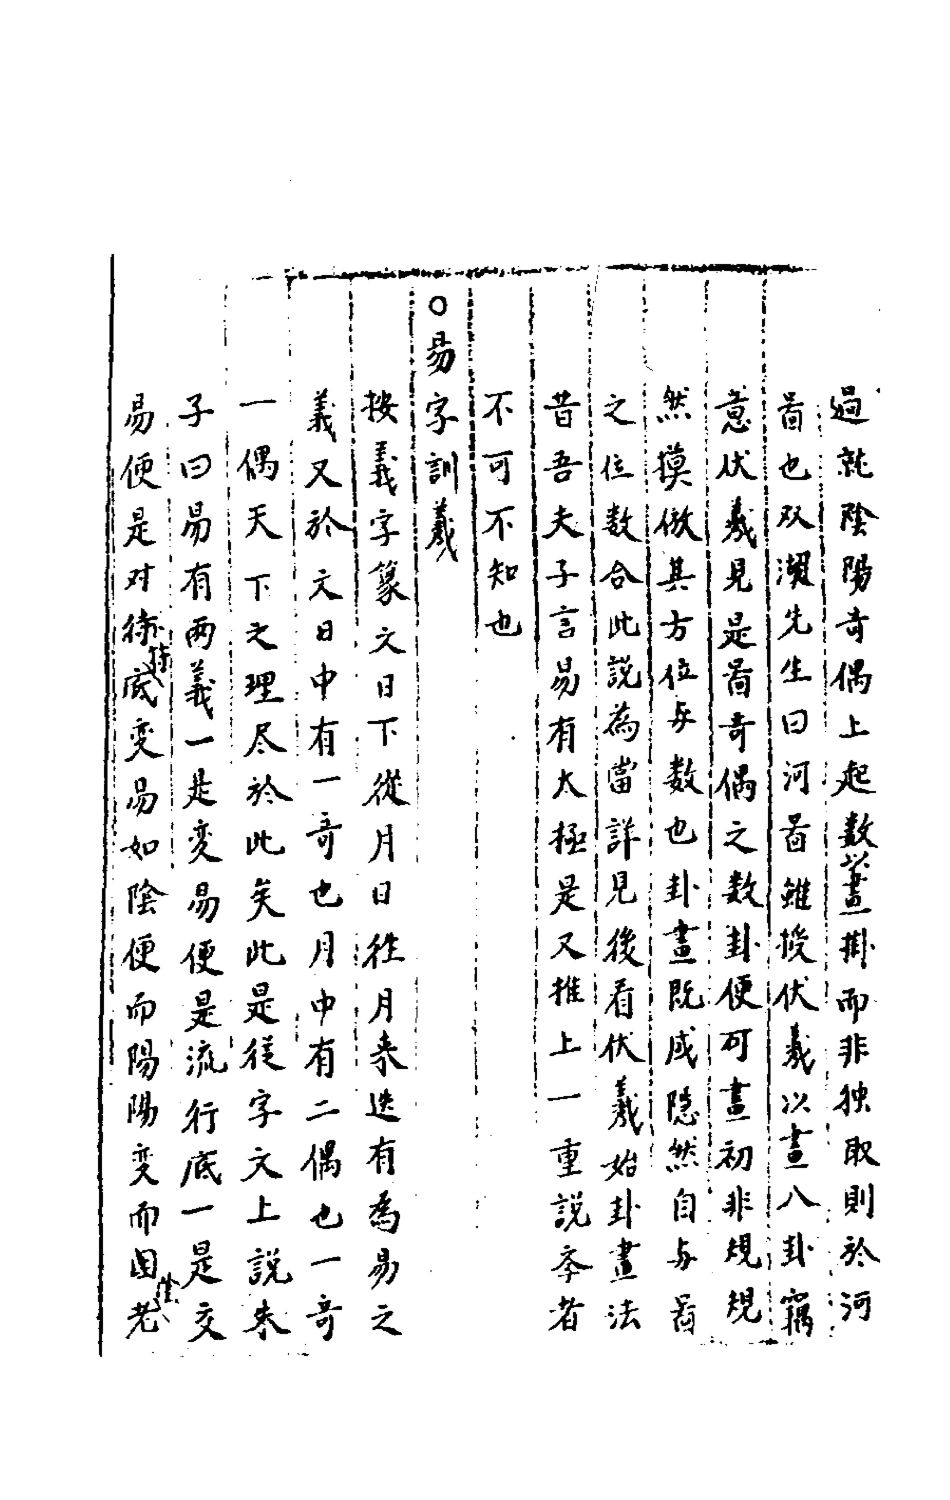 過就陰陽奇偶上起数以畫掛而非独取則於河
啚也双灘先生曰河啚雖授伏羲以畫八卦竊
意伏羲見是啚奇偶之数卦便可畫初非規規
然摸倣其方位与数也卦畫既成隐然自与啚
之位数合此説為當詳見後看伏羲始卦畫法
昔吾夫子言易有太極是又推上一重説斈者
不可不知也
○易字訓義
按義字篆文日下從月日往月来迭有為易之
義又於文日中有一奇也月中有二偶也一奇
一偶天下之理尽於此矣此是従字文上説朱
子曰易有両義一是変易便是流行底一是交
易便是对待底変易如陰便而陽陽変而囬老